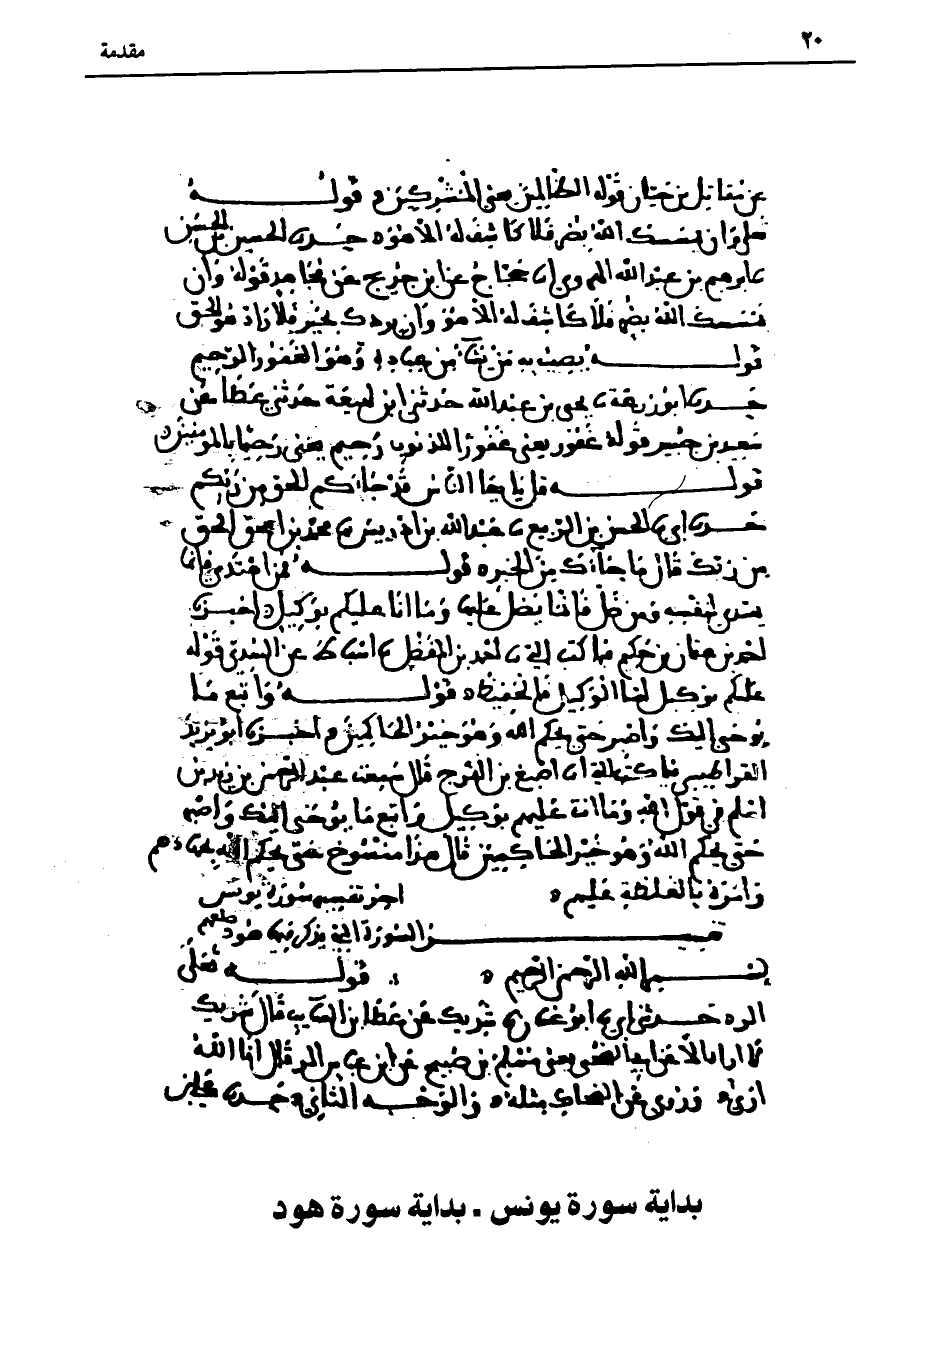 ٢٠
مقدمة
عن مقاتل بن حيان قوله الظالمين يعني المشركين ٥ قوله
تعالى وان يمسسك الله بضر فلا كاشف له الا هو ٥ حدثنا الحسين بن الحسن
بن عبد الله الهروي ثنا حجاج عن ابن جريج عن مجاهد قوله وان
يمسسك الله بضر فلا كاشف له الا هو وان يردك بخير فلا راد هو الحق
قوله يصيب به من يشا من عباده وهو الغفور الرحيم
حدثنا ابو زرعة ثنا يحيى بن عبد الله حدثني ابن لهيعة حدثني عطا عن
سعيد بن جبير قوله غفور يعني غفورا للذنوب رحيم يعني رحيما بالمؤمنين
قوله قل يا يها الناس قد جاكم الحق من ربكم
حدثنا ابي ثنا الحسن بن الربيع ثنا عبد الله بن ادريس ثنا محمد بن اسحق الحق
من ربك قال ما جاك من الخبر ٥ قوله فمن اهتدى فانما
يهتدي لنفسه ومن ضل فانما يضل عليها وما انا عليكم بوكيل اخبرنا
احمد بن عثمان بن حكيم فيما كتب الي ثنا احمد بن المفضل ثنا اسباط عن السدي قوله
عليكم بوكيل اما الوكيل فالحفيظ ٥ قوله واتبع ما
يوحى اليك واصبر حتى يحكم الله وهو خير الحاكمين ٥ اخبرنا ابو يزيد
القراطيسي فيما كتب الي ثنا اصبغ بن الفرج قال سمعت عبد الرحمن بن زيد بن
اسلم في قول الله وما انت عليهم بوكيل واتبع ما يوحى اليك واصبر
حتى يحكم الله وهو خير الحاكمين قال هذا منسوخ حتى يحكم الله بجهادهم
وامره بالغلظة عليهم ٥ اخر تفسير سورة يونس
تفسير السورة التي يذكر فيها هود
بسم الله الرحمن الرحيم ٥ قوله تعالى
الر ٥ حدثنا ابي ثنا ابو غسان ثنا شريك عن عطا بن السايب قال شريك
عن ابن عباس الر قال انا الله
ارى ٥ وروي عن الضحاك مثله ٥ والوجه الثاني ٥ حدثنا علي بن
بداية سورة يونس - بداية سورة هود